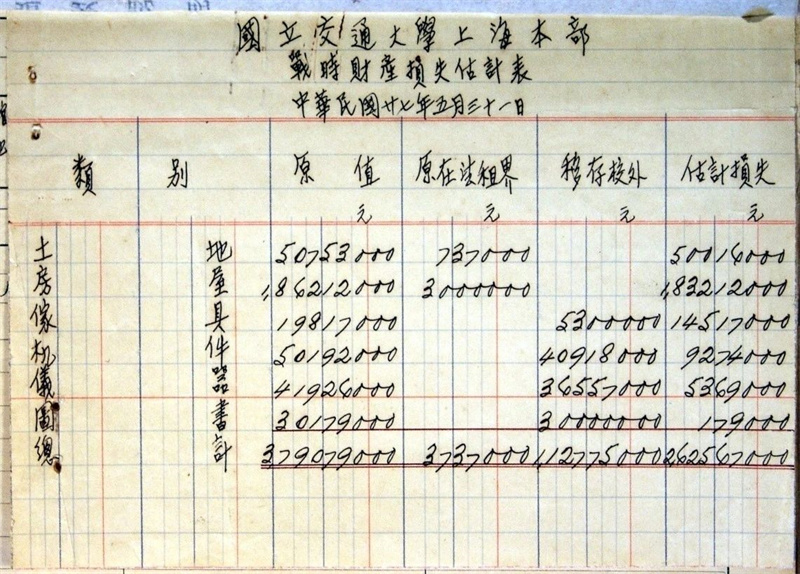 國立交通大學上海本部
戰時財產損失估計表
中華民國廿七年五月三十一日
類 別 原 值 原在法租界 移存校外 估計損失
元 元 元 元
土 地 50753000 737000 50016000
房 屋 186212000 3000000 183212000
傢 具 19817000 5300000 14517000
机 件 50192000 40918000 9274000
儀 器 41926000 36557000 5369000
圖 書 30179000 30000000 179000
總 計 379079000 3737000 112775000 262567000